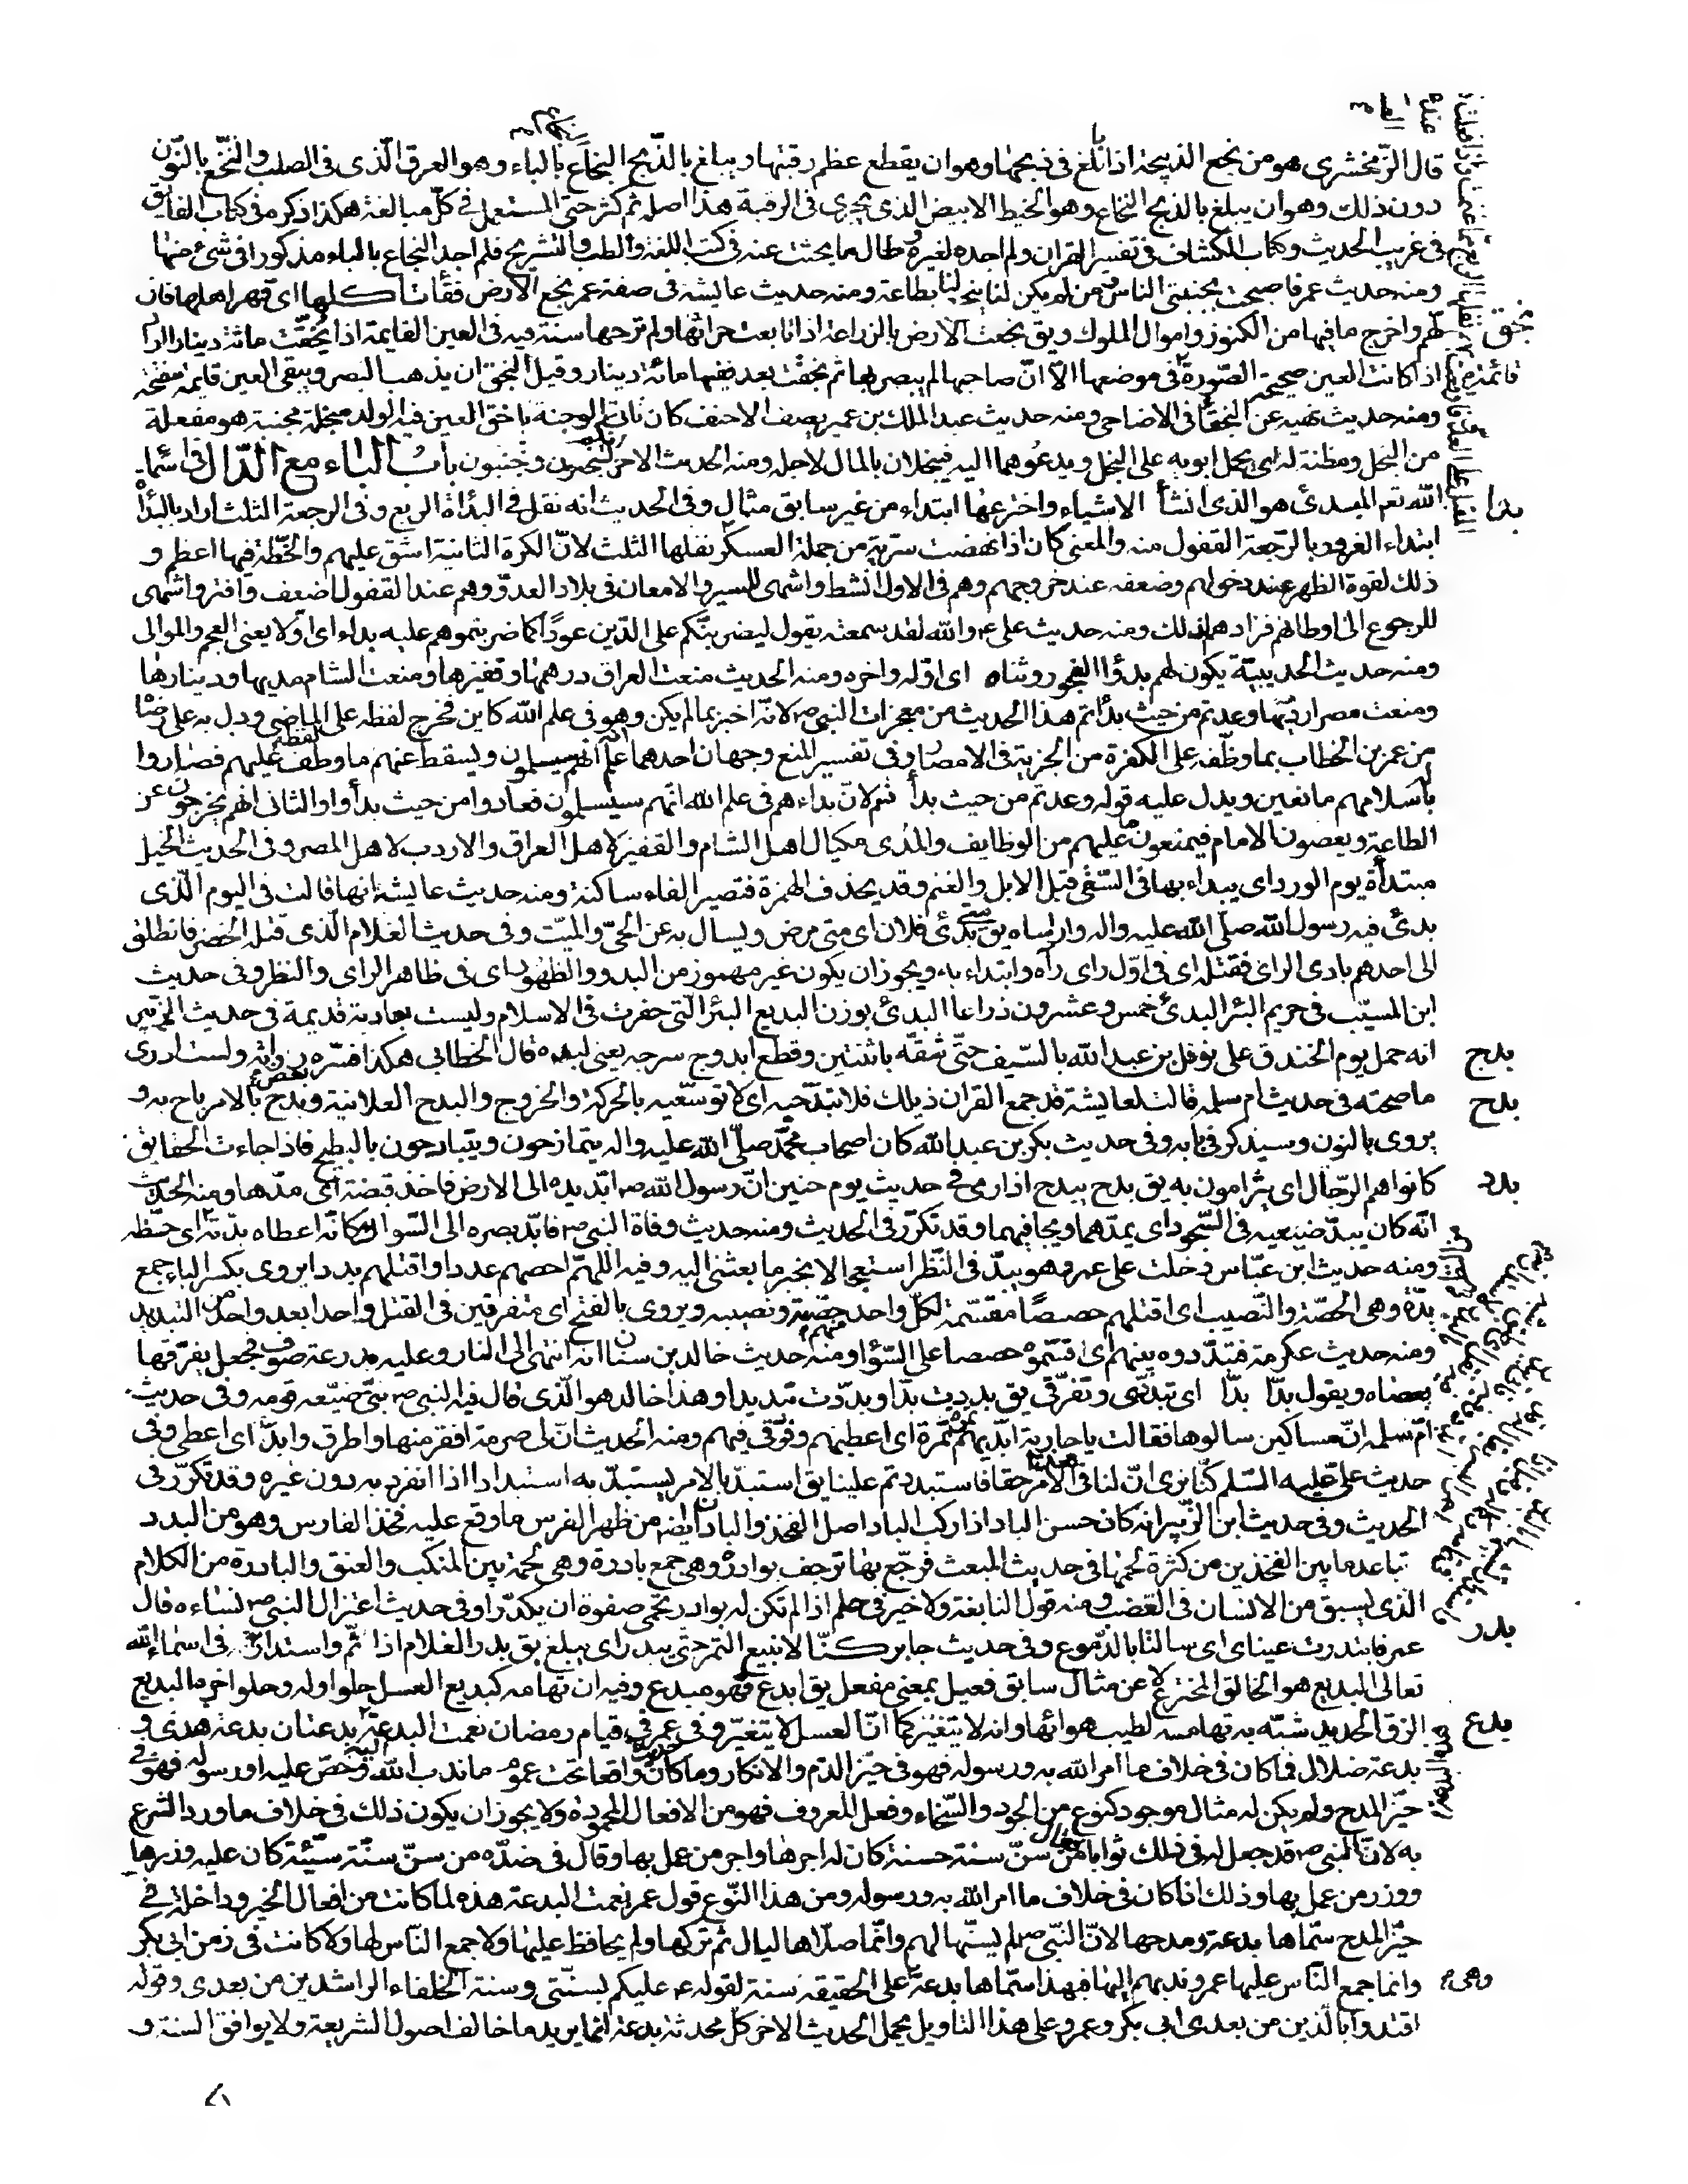 قال الزمخشرى هو من بخع الذبيحة اذا بالغ فى ذبحها وهو ان يقطع عظم رقبتها ويبلغ بالذبح البخاع بالباء وهو العرق الّذى فى الصلب والنخع بالنّون
دون ذلك وهو ان يبلغ بالذبح النخاع وهو الخيط الابيض الذى يجرى فى الرقبة هذا اصله ثم كثر حتى استعمل فى كلّ مبالغة هكذا ذكره فى كتاب الفايق
فى غريب الحديث وكتاب الكشاف فى تفسير القران ولم اجده لغيره وطال ما بحثت عنه فى كتب اللغة والطب والتشريح فلم اجد البخاع بالباء مذكورا فى شئ منها
ومنه حديث عمر فاصبحت بجنبتى الناس من لم يكن لنا يبخع لنا بطاعة ومنه حديث عايشه فى صفة عمر بخع الارض فقاءت اكلها اى قهر اهلها فاذ
لهم واخرج ما فيها من الكنوز واموال الملوك ويق بخعت الارض بالزراعة اذا تابعت حراثتها ولم ترحها سنة فيه فى العين القايمة اذا بُخقت مائة دينار اراد
بخق
اذا كانت العين صحيحة الصّورة فى موضعها الا انّ صاحبها لم يبصر بها ثم بخقت بعد ففيها مائة دينار وقيل البخق ان يذهب البصر ويبقى العين قايمة منفتحة
ومنه حديث نهيه عن البخقاء فى الاضاحى ومنه حديث عبد الملك بن عمير يصف الاحنف كان ناتى الوجنة باخق العين فيه الولد مبخلة مجبنة هو مفعلة
من البخل ومظنة له اى يحمل ابويه على البخل ويدعوهما اليه فيبخلان بالمال لاجله ومنه الحديث الاخر انكم لتبخلون وتجبنون باب الباء مع الدّال فى اسماء
بدا
الله تعم المبدئ هو الذى انشأ الاشياء واخترعها ابتداء من غير سابق مثال وفى الحديث انه نفل فى البداة الربع وفى الرجعة الثلث اراد بالبدأة
ابتداء الغزو وبالرّجعة القفول منه والمعنى كان اذا نهضت سرية من جملة العسكر نفلها الثلث لانّ الكرة الثانية اشق عليهم والخطّة فيها اعظم و
ذلك لقوة الظهر عند دخولهم وضعفه عند خروجهم وهم فى الاول انشط واشهى للسير والامعان فى بلاد العدوّ وهم عند القفول اضعف وافتر واشهى
للرجوع الى اوطانهم فزادهم لذلك ومنه حديث على ع والله لقد سمعته يقول ليضربنّكم على الدّين عودًا كما ضربتموهم عليه بداء اى اولا يعنى العجم والموالى
ومنه حديث الحديبيّة يكون لهم بدؤا الفجور وثناه اى اوّله واخره ومنه الحديث منعت العراق درهمها وقفيزها ومنعت الشام مديها ودينارها
ومنعت مصر اردبّها وعدتم من حيث بدأتم هذا الحديث من معجزات النبى ص لانّه اخبر بما لم يكن وهو فى علم الله كاين فخرج لفظه على الماضى ودل به على رضاه
من عمر بن الخطاب بما وظّفه على الكفرة من الجزية فى الامصار وفى تفسير المنع وجهان احدهما علم انهم سيسلمون ويسقط عنهم ما وظف عليهم فصاروا
باسلامهم مانعين ويدل عليه قوله وعدتم من حيث بدأتم لانّ بداءهم فى علم الله انهم سيسلمون فعادوا من حيث بدأوا والثانى انهم يخرجون عن
الطاعة ويعصون الامام فيمنعون ما عليهم من الوظايف والمُدى مكيال اهل الشام والقفيز لاهل العراق والاردب لاهل المصر وفى الحديث الخيل
مبتدأة يوم الورد اى يبداء بها فى السّقى قبل الابل والغنم وقد يحذف الهمزة فتصير الفاء ساكنة ومنه حديث عايشة انها قالت فى اليوم الّذى
بدئ فيه رسول الله صلى الله عليه واله وارأساه يق متى بُدئ فلان اى متى مرض ويسال به عن الحىّ والميّت وفى حديث الغلام الّذى قتله الخضر فانطلق
الى احدهم بادى الراى فقتله اى فى اوّل راى رآه وابتداء به ويجوز ان يكون غير مهموز من البدو والظهور اى فى ظاهر الراى والنظر وفى حديث
ابن المسيّب فى حريم البئر البدئ خمس وعشرون ذراعا البدئ بوزن البديع البئر الّتى حفرت فى الاسلام وليست بعادية قديمة فى حديث الزبير
بدج
انه حمل يوم الخندق على نوفل بن عبد الله بالسّيف حتّى شقّه باثنتين وقطع ابدوج سرجه يعنى لبده قال الخطابى هكذا فسّره بعض رواته ولست ادرى
بدح
ما صحته فى حديث ام سلمه قالت لعايشة قد جمع القران ذيلك فلا تبدّحيه اى لا توسّعيه بالحركة والخروج والبدح العلانية وبدح بالامر باح به و
يروى بالنون وسيذكر فى بابه وفى حديث بكر بن عبد الله كان اصحاب محمّد صلّى الله عليه واله يتمازحون ويتبادحون بالبطيخ فاذا جاءت الحقايق
بدد
كانوا هم الرّجال اى يترامون به يق بدح يبدح اذا رمى فى حديث يوم حنين انّ رسول الله ص ابّد يده الى الارض فاخذ قبضة اى مدّها ومنه الحديث
انّه كان يبدّ ضبعيه فى السّجود اى يمدّهما ويجافيهما وقد تكرّر فى الحديث ومنه حديث وفاة النبى ص فابدّ بصره الى السّواك كانّه اعطاه بدّته اى حظّه
ومنه حديث ابن عبّاس دخلت على عمر وهو يبدّ فى النّظر استعجالا بخبر ما بعثنى اليه وفيه اللهمّ احصهم عددا واقتلهم بددا يروى بكسر الباء جمع
بدّة وهى الحصّة والنّصيب اى اقتلهم حصصًا مقسّمة لكلّ واحد حصّته ونصيبه ويروى بالفتح اى متفرقين فى القتل واحدا بعد واحد من التبديد
ومنه حديث عكرمة فتبدّدوه بينهم اى قتسّموه حصصا على السّواء ومنه حديث خالد بن سنان انه انتهى الى النار وعليه مدرعة صوف فجعل يفرّقها
بعصاه ويقول بدّا بدّا اى تبدّدى وتفرّقى يق بددت بدّا وبدّدت تبديدا وهذا خالد هو الّذى قال فيه النبى ص نبىّ ضيّعه قومه وفى حديث
امّ سلمه انّ مساكين سالوها فقالت يا جارية ابدّيهم تمرة تمرة اى اعطيهم وفرّقى فيهم ومنه الحديث انّ لى صرمة افقر منها واطرق وابدّ اى اعطى وفى
حديث على عليه السّلم كنّا نرى انّ لنا فى هذا الامر حقا فاستبددتم علينا يق استبدّ بالامر يستبدّ به استبدادا اذا انفرد به دون غيره وقد تكرّر فى
الحديث وفى حديث ابن الزّبير انه كان حسن الباد اذا ركب الباد اصل الفخذ والبادّان ايضه من ظهر الفرس ما وقع عليه فخذ الفارس وهو من البدد
تباعد ما بين الفخذين من كثرة لحمها فى حديث المبعث فرجّع بها ترجف بوادره وهى جمع بادرة وهى لحمة بين المنكب والعنق والبادرة من الكلام
بدر
الّذى يسبق من الانسان فى الغضب ومنه قول النابغة ولا خير فى حلم اذا لم تكن له بوادر تحمى صفوه ان يكدّرا وفى حديث اعتزال النبى ص نساءه قال
عمر فابتدرت عيناى اى سالتا بالدّموع وفى حديث جابر كنّا لا نبيع التمر حتّى يبدر اى يبلغ يق بدر الغلام اذا تمّ واستدار فى اسماء الله
بدع
تعالى البديع هو الخالق المخترع لا عن مثال سابق فعيل بمعنى مفعل يق ابدع فهو مبدع وفيه ان تهامه كبديع العسل حلو اوله وحلو اخره البديع
الزق الجديد شبّه به تهامه لطيب هوائها وانه لا يتغيّر كما انّ العسل لا يتغيّر وفى حديث عمر فى قيام رمضان نعمت البدعة هذه البدعة بدعتان بدعة هدى و
بدعة ضلال فما كان فى خلاف ما امر الله به ورسوله فهو فى حيّز الذم والانكار وما كان واقعا تحت عموم ما ندب الله اليه وحضّ عليه او رسوله فهو فى
حيّز المدح وما لم يكن له مثال موجود كنوع من الجود والسّخاء وفعل المعروف فهو من الافعال المحمودة ولا يجوز ان يكون ذلك فى خلاف ما ورد الشرع
به لانّ النبى ص قد جعل له فى ذلك ثوابا فقال من سنّ سنّة حسنة كان له اجرها واجر من عمل بها وقال فى ضدّه من سنّ سنّة سيّئة كان عليه وزرها
ووزر من عمل بها وذلك اذا كان فى خلاف ما امر الله به ورسوله ومن هذا النّوع قول عمر نعمت البدعة هذه لما كانت من افعال الخير وداخلة فى
حيّز المدح سمّاها بدعة ومدحها لانّ النّبى ص لم يسنّها لهم وانّما صلّاها ليال ثم تركها ولم يحافظ عليها ولا جمع النّاس لها ولا كانت فى زمن ابى بكر
وانما جمع النّاس عليها عمر وندبهم اليها فبهذا سمّاها بدعة وهى على الحقيقة سنة لقوله ع عليكم بسنّتى وسنة الخلفاء الراشدين من بعدى وقوله
اقتدوا بالّذين من بعدى ابى بكر وعمر وعلى هذا التاويل يحمل الحديث الاخر كلّ محدثة بدعة انّما يريد ما خالف اصول الشريعة ولا يوافق السنة و